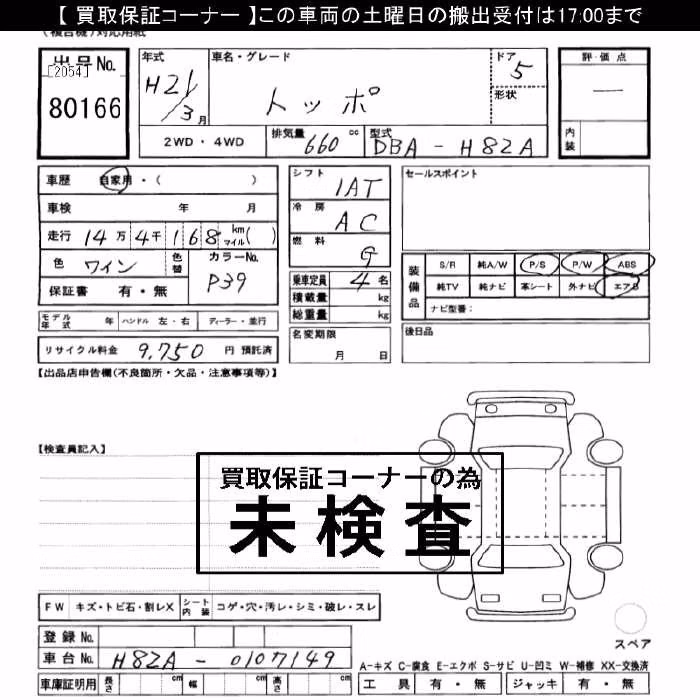 【 買取保証コーナー 】この車両の土曜日の搬出受付は17:00まで
(複合機)対応用紙
出品No.
[2054]
80166
年式
H21/3月
車名・グレード
トッポ
ドア
5
形状
評価点
内装
2WD・4WD
排気量 660 cc
型式 DBA-H82A
車歴 自家用・( )
車検 年 月
走行 14万4千168 km マイル( )
色 ワイン 色替 カラーNo. P39
保証書 有・無
シフト IAT
冷房 AC
燃料 G
乗車定員 4名
積載量 kg
総重量 kg
セールスポイント
装備品
S/R 純A/W P/S P/W ABS
純TV 純ナビ 革シート 外ナビ エアB
ナビ型番：
モデル年式 年 ハンドル 左・右 ディーラー・並行
名変期限 月 日
後日品
リサイクル料金 9,750 円 預託済
【出品店申告欄(不良箇所・欠品・注意事項等)】
【検査員記入】
買取保証コーナーの為
未検査
FW キズ・トビ石・割レX シート内装 コゲ・穴・汚レ・シミ・破レ・スレ
登録No.
車台No. H82A-0107149
車庫証明用 長さ cm 幅 cm 高さ cm
スペア
A-キズ C-腐食 E-エクボ S-サビ U-凹ミ W-補修 XX-交換済
工具 有・無 ジャッキ 有・無